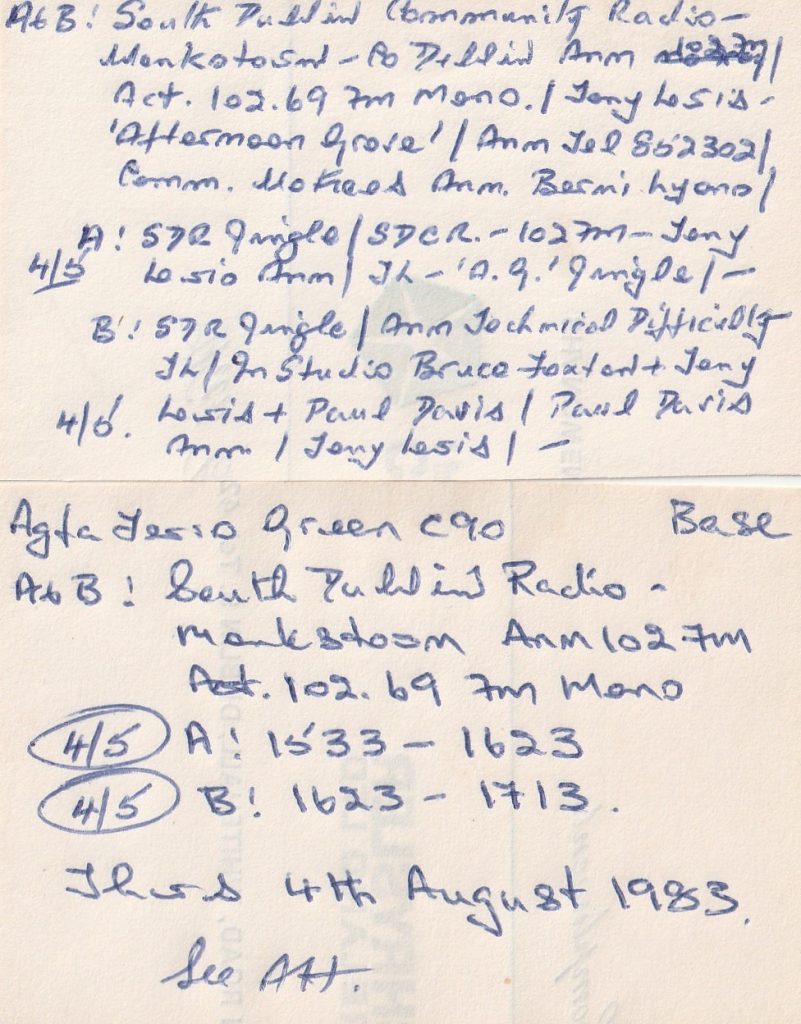 A&B: South Dublin Community Radio -
Monkstown - Co Dublin Ann 102 FM/
Act. 102.69 FM Mono. / Tony Lewis -
'Afternoon Groove' / Ann Tel 852302/
Comm. Ann. Berni Lyons/
A: SDR Jingle / SDCR. - 102 FM - Tony
4/5 Lewis Ann / TL - 'A.G.' Jingle / -
B: SDR Jingle / Ann Technical Difficulty
TL / In Studio Bruce Foxton + Tony
4/5. Lewis + Paul Davis / Paul Davis
Ann. / Tony Lewis / -
Agfa Ferro Green C90 Base
A&B: South Dublin Radio -
Monkstown Ann 102 FM
Act. 102.69 FM Mono
4/5 A: 1533 - 1623
4/5 B: 1623 - 1713.
Thurs 4th August 1983.
See Att.